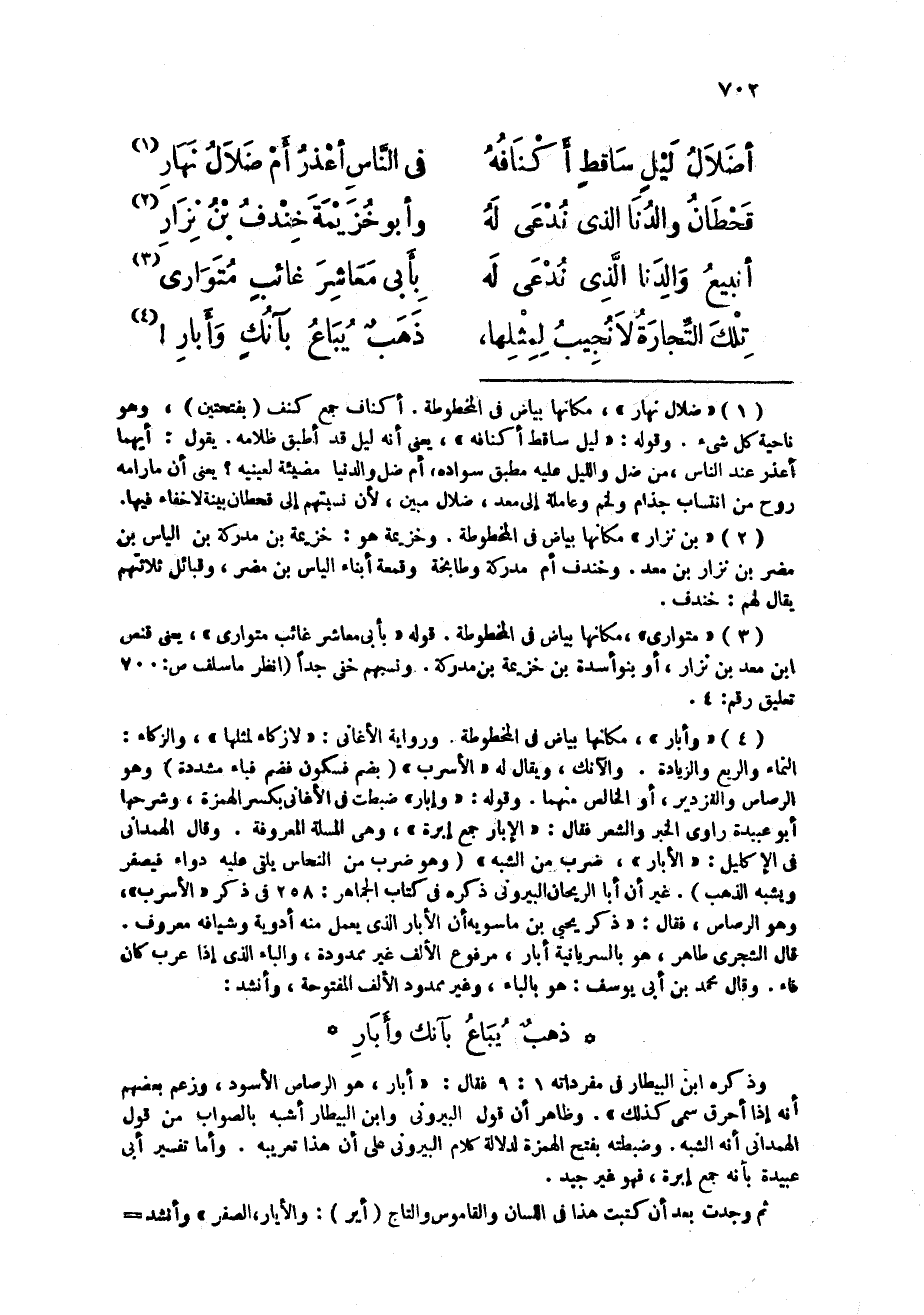 ٧٠٢
أضَلَالُ لَيْلٍ سَاقطٍ أَكْنَافُهُ فى النَّاسِ أعْذرُ أمْ ضَلَالُ نَهَارِ (١)
قَحْطَانُ والدُنَا الذى نُدْعَى لَهُ وأبو خُزَيْمَةَ خِنْدفُ بْنُ نِزَارِ (٢)
أنبيعُ وَالِدَنا الَّذِى نُدْعَى لَه بِأَبى مَعَاشِرَ غائبٍ مُتَوَارى (٣)
تِلْكَ التِّجارَةُ لاَ نُجِيبُ لِمِثْلِها، ذَهَبٌ يُبَاعُ بآنُكٍ وَأَبارِ ! (٤)
(١) « ضلال نهار » ، مكانها بياض فى المخطوطة . أكناف جمع كنف ( بفتحتين ) ، وهو
ناحية كل شىء . وقوله : « ليل ساقط أكنافه » ، يعنى أنه ليل قد أطبق ظلامه . يقول : أيهما
أعذر عند الناس ، من ضل والليل عليه مطبق سواده، أم ضل والدنيا مضيئة لعينيه ؟ يعنى أن مارامه
روح من انتساب جذام ولخم وعاملة إلى معد ، ضلال مبين ، لأن نسبتهم إلى قحطان بينة لاخفاء فيها.
(٢) « بن نزار » مكانها بياض فى المخطوطة . وخزيمة هو : خزيمة بن مدركة بن الياس بن
مضر بن نزار بن معد . وخندف أم مدركة وطابخة وقمعة أبناء الياس بن مضر ، وقبائل ثلاثتهم
يقال لهم : خندف .
(٣) « متوارى» ، مكانها بياض فى المخطوطة . قوله « بأبى معاشر غائب متوارى » ، يعنى قنص
ابن معد بن نزار ، أو بنو أسدة بن خزيمة بن مدركة . ونسبهم خفى جداً (انظر ماسلف ص: ٧٠٠
تعليق رقم: ٤ .
(٤) « وأبار » ، مكانها بياض فى المخطوطة . ورواية الأغانى : « لازكاء لمثلها » ، والزكاء :
النماء والريع والزيادة . والآنك ، ويقال له « الأسرب » ( بضم فسكون فضم فباء مشددة ) وهو
الرصاص والقزدير ، أو الخالص منهما . وقوله : « وإبار» ضبطت فى الأغانى بكسر الهمزة ، وشرحها
أبو عبيدة راوى الخبر والشعر فقال : « الإبار جمع إبرة » ، وهى المسلة المعروفة . وقال الهمدانى
فى الإكليل : « الأبار » ، ضرب من الشبه » ( وهو ضرب من النحاس يلقى عليه دواء فيصفر
ويشبه الذهب ) . غير أن أبا الريحان البيرونى ذكره فى كتاب الجماهر : ٢٥٨ فى ذكر « الأسرب»،
وهو الرصاص ، فقال : « ذكر يحيى بن ماسويه أن الأبار الذى يعمل منه أدوية وشيافه معروف .
قال الشجرى طاهر ، هو بالسريانية أبار ، مرفوع الألف غير ممدودة ، والباء الذى إذا عرب كان
فاء . وقال محمد بن أبى يوسف : هو بالباء ، وغير ممدود الألف المفتوحة ، وأنشد :
* ذهبٌ يُبَاعُ بآنك وأبَارِ *
وذكره ابن البيطار فى مفرداته ١ : ٩ فقال : « أبار ، هو الرصاص الأسود ، وزعم بعضهم
أنه إذا أحرق سمى كذلك » . وظاهر أن قول البيرونى وابن البيطار أشبه بالصواب من قول
الهمدانى أنه الشبه . وضبطته بفتح الهمزة لدلالة كلام البيرونى على أن هذا تعريبه . وأما تفسير أبى
عبيدة بأنه جمع إبرة ، فهو غير جيد .
ثم وجدت بعد أن كتبت هذا فى اللسان والقاموس والتاج ( أير ) : والأيار، الصفر » وأنشد =